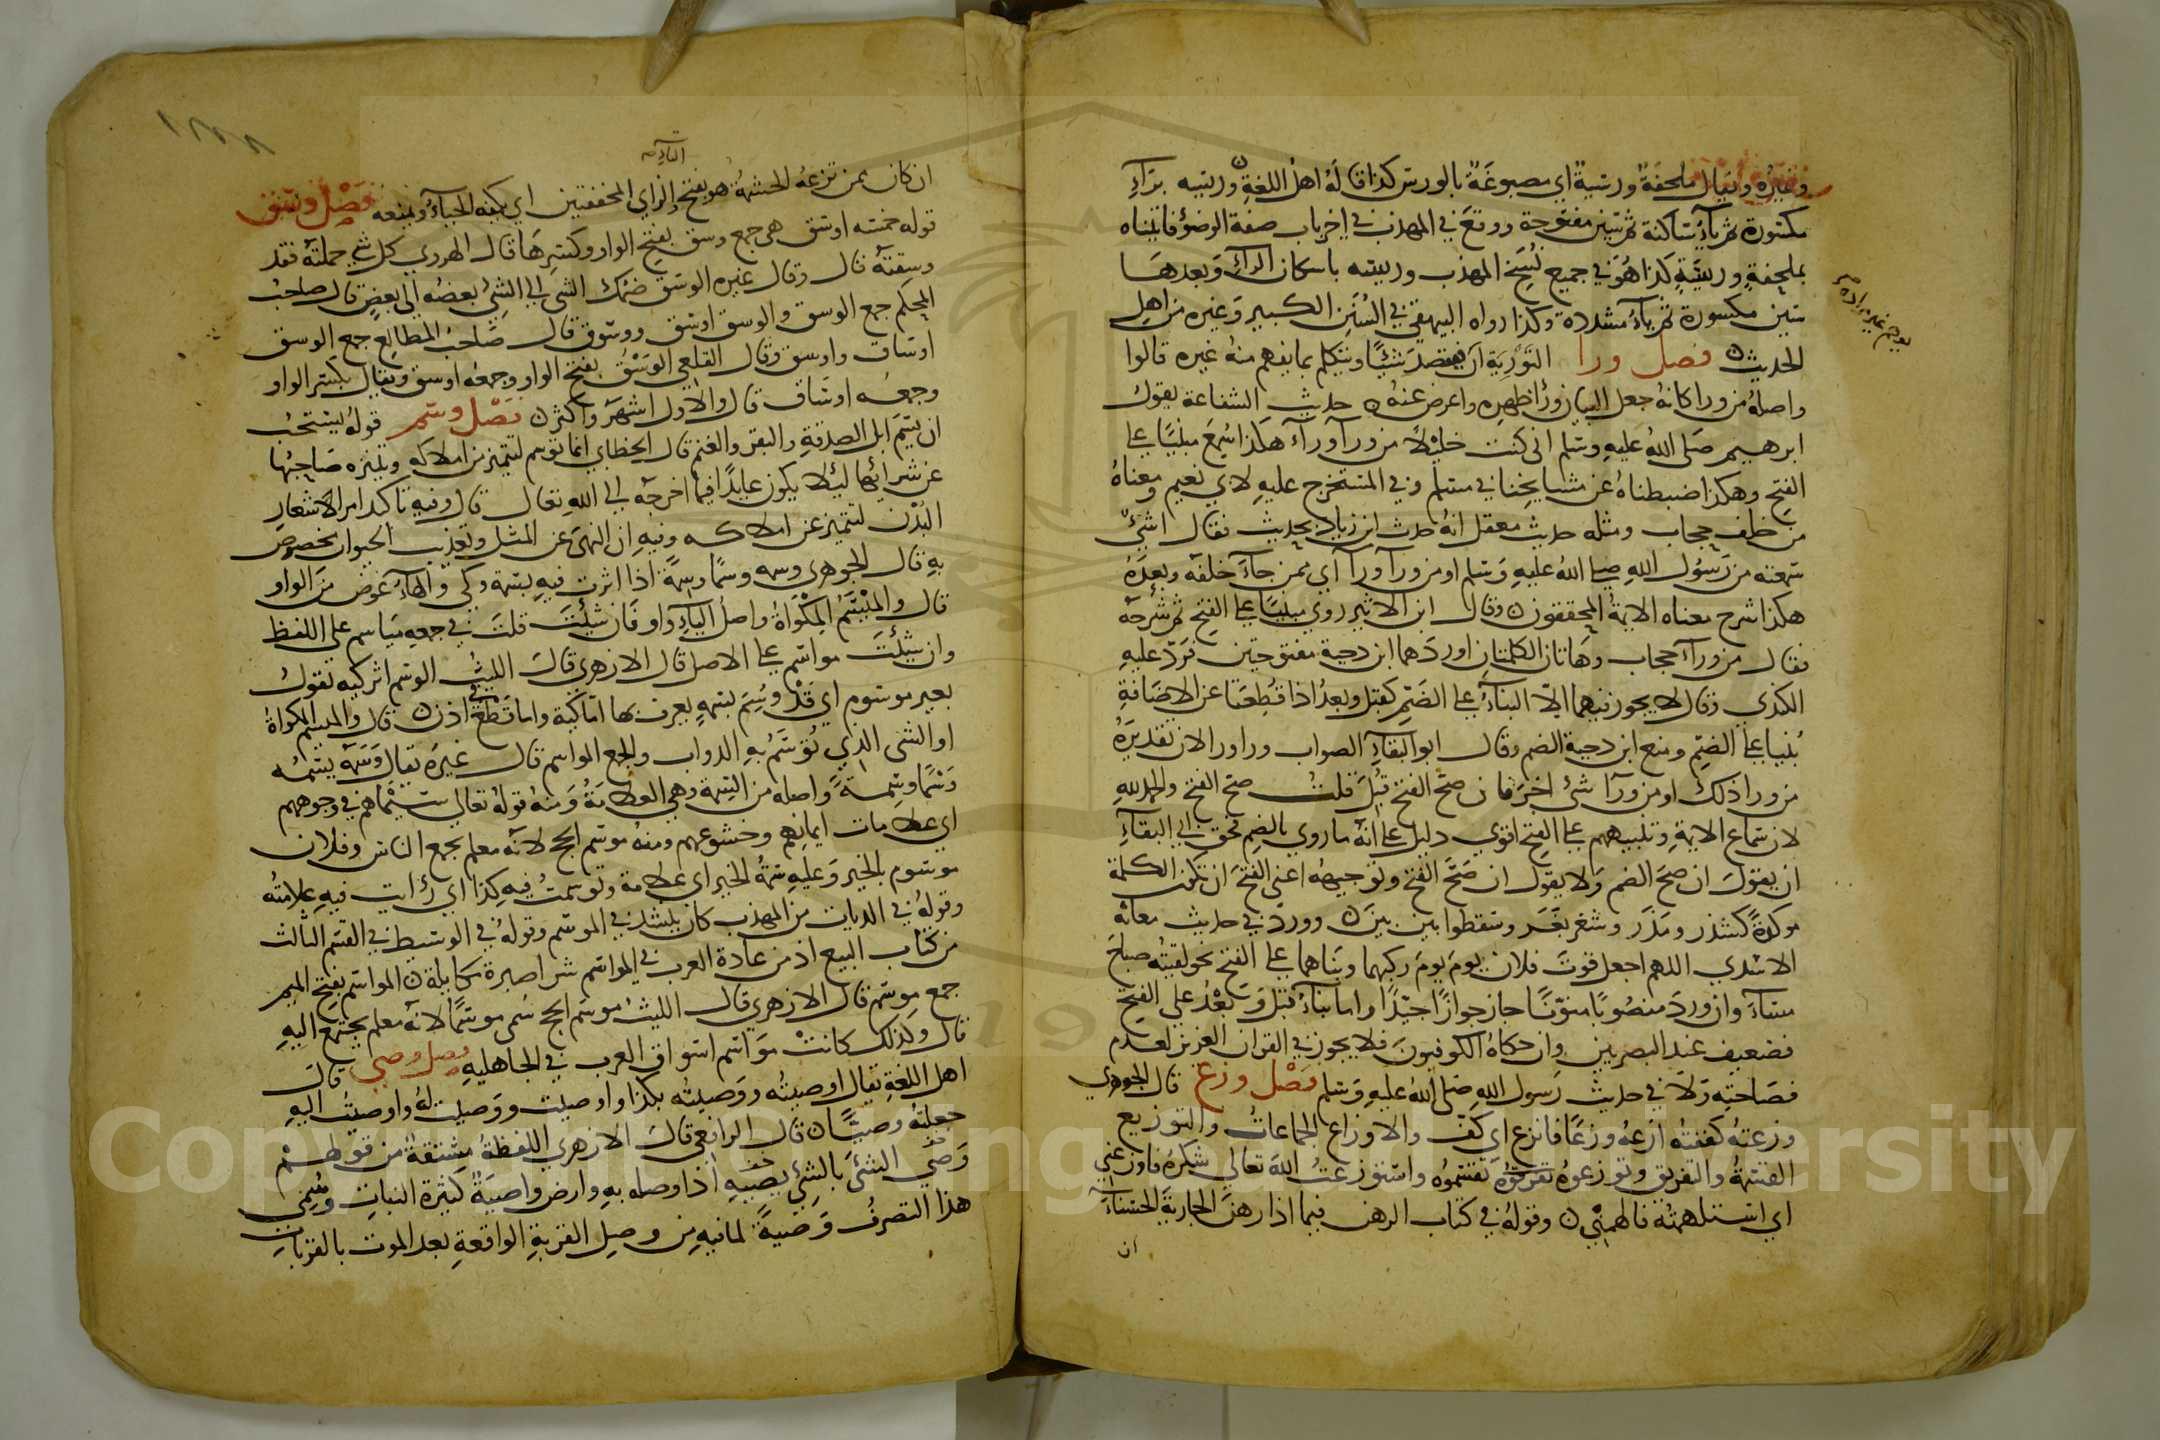 وغيره ويقال ملحفة ورسية اي مصبوغة بالورس كذا قاله اهل اللغة ن وريسه براء
مكسورة ثم ياء ساكنة ثم سين مفتوحة ووقع في المهذب في اخر باب صفة الوضوء فاتيناه
بملحفة وريسية كذا هو في جميع نسخ المهذب وريسه باسكان الراء وبعدها
سين مكسورة ثم ياء مشددة وكذا رواه البيهقي في السنن الكبير وغيره من اهل
الحديث ن فصل ورا التورية ان يقصد شيئا ويتكلم بما يفهم منه غيره قالوا
واصله من ورا كانه جعل البيان ورا ظهره واعرض عنه ن حديث الشفاعة يقول
ابرهيم صلى الله عليه وسلم اني كنت خليلا من ورآ ورآء هكذا سمع مبنيا على
الفتح وهكذا ضبطناه عن مشايخنا في مسلم وفي المستخرج عليه لابي نعيم ومعناه
من خلف حجاب ومثله حديث معقل انه حدث ابن زياد بحديث فقال اشيء
سمعته من رسول الله صلى الله عليه وسلم او من ورآ ورآ اي ممن جآء خلفه وبعده
هكذا شرح معناه الايمة المحققون ن وقال ابن الاثير روي مبنيا على الفتح ثم شرحه
فقال من ورآء حجاب وهاتان الكلمتان اوردهما ابن دحية مفتوحتين فرد عليه
الكندي وقال لا يجوز فيهما الا البناء على الضم كقبل وبعد اذا قطعتا عن الاضافة
بنيا على الضم ومنع ابن دحية الضم وقال ابو البقاء الصواب ورا ورا لان تقديره
من ورا ذلك او من ورآ شيء اخر فان صح الفتح قبل قلت صح الفتح والحمد لله
لان سماع الايمة وتنبيههم على الفتح اقوى دليل على انه ما روي بالضم فحق ابي البقاء
ان يقول ان صح الضم ولا يقول ان صح الفتح وتوجيهه اعني الفتح ان تكون الكلمة
موكدة كشذر ومذر وشغر بغر وسقطوا بين بين ن وورد في حديث معاته
الاسدي اللهم اجعل قوت فلان يوم يوم ركبهما وبناهما على الفتح نحو لقيته صباح
مساء وان ورد منصوبا منونا جاز جوازا جيدا واما بناء قبل وبعد على الفتح
فضعيف عند البصريين وان حكاه الكوفيون فلا يجوز في القران العزيز لعدم
فصاحته ولا في حديث رسول الله صلى الله عليه وسلم فصل وزع قال الجوهري
وزعته كففته ازعه وزعا فاتزع اي كف والاوزاع الجماعات والتوزيع
القسمة والتفريق وتوزعوه تفرقوه تقسموه واستوزعت الله تعالى شكره فاوزعني
اي استلهمته فالهمني ن وقوله في كتاب الرهن فيما اذا رهن الجارية الحسناء
ان
ان كان ممن تزعه الحشمة هو بفتح التاء والزاي المخففتين اي يكفه الحياء ويمنعه فصل وسق
قوله خمسة اوسق هي جمع وسق بفتح الواو وكسرها قال الهروي كل شيء حملته فقد
وسقته قال وقال غيره الوسق ضمك الشيء الى الشيء بعضه الى بعض قال صاحب
المحكم جمع الوسق والوسق اوسق ووسوق قال صاحب المطالع جمع الوسق
اوساق واوسق وقال القلعي الوسق بفتح الواو وجمعه اوسق ويقال بكسر الواو
وجمعه اوساق قال والاول اشهر واكثر ن فصل وسم قوله يستحب
ان يسم ابل الصدقة والبقر والغنم قال الخطابي انما توسم لتتميز من املاكه ويتنزه صاحبها
عن شرائها ليلا يكون عايدا فيما اخرجه الى الله تعالى قال وفيه تاكد امر الاشعار
البدن لتتميز عن املاكه وفيه ان النهي عن المثل وتعذيب الحيوان مخصوص
به قال الجوهري وسمه وسما وسمة اذا اثرت فيه بسمة وكي والهاء عوض من الواو
قال والميسم المكواة واصل الياء واو فان شئت قلت في جمعه مياسم على اللفظ
وان شئت مواسم على الاصل قال الازهري قال الليث الوسم اثر كيه تقول
بعير موسوم اي قد وسم بسمة يعرف بها اما كية واما قطع في اذن ن قال والميسم المكواة
او الشيء الذي توسم به الدواب والجمع المواسم قال غيره يقال وسمه يسمه
وسما وسمة واصله من السمة وهي العلامة ومنه قوله تعالى سيماهم في وجوههم
اي علامات ايمانهم وخشوعهم ومنه موسم الحج لانه معلم يجمع الناس وفلان
موسوم بالخير وعليه سمة الخير اي علامة وتوسمت فيه كذا اي رايت فيه علامته
وقوله في الديات من المهذب كان ينشد في الموسم وقوله في الوسيط في القسم الثالث
من كتاب البيع اذ من عادة العرب في المواسم شرا صبرة مكايلة ن المواسم بفتح الميم
جمع موسم قال الازهري قال الليث موسم الحج سمي موسما لانه معلم يجتمع اليه
قال ولذلك كانت مواسم اسواق العرب في الجاهلية فصل وصي قال
اهل اللغة يقال اوصيته ووصيته بكذا واوصيت ووصيت له واوصيت اليه
جعلته وصيا ن قال الرافعي قال الازهري اللفظة مشتقة من قولهم
وصى الشيء بالشيء يصيه اذا وصله به وارض واصية كثيرة النبات وسمي
هذا التصرف وصية لما فيه من وصل القربة الواقعة بعد الموت بالقربات
Copyright © King Saud University